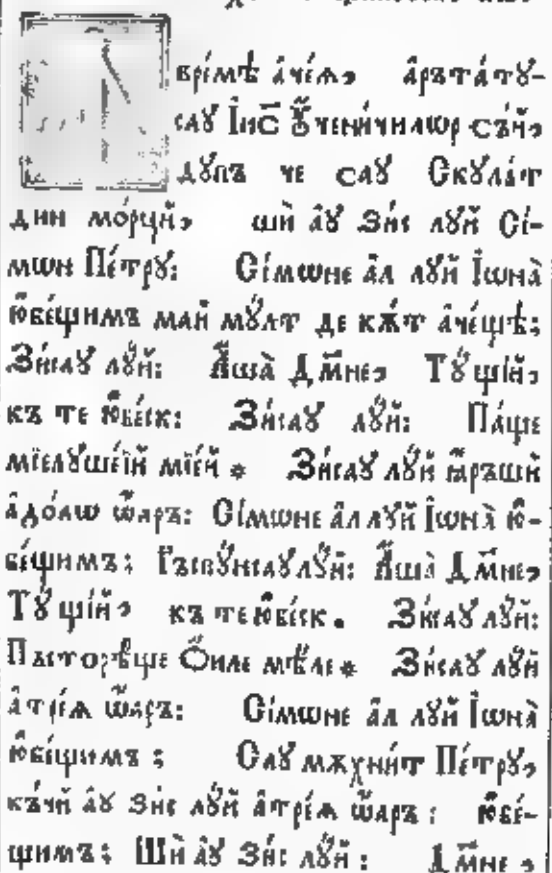 врéмѣ ачéѧ, арътатꙋ-
саꙋ Іи҃с Оу҆ченичилѡр сѣ́й,
дꙋпъ че саꙋ Скꙋлáт
дин мóрцй, ши аꙋ Зи́с лꙋй Сі́-
мѡн Пéтрꙋ: Сі́мѡне ал лꙋй Іѡнà
юбéщимъ май мꙋ́лт де кѫ́т ачéщѣ;
Зи́саꙋ лꙋ́й: Аша̀ Дм҃не, Тꙋ щі́й,
къ те юбéск: Зи́саꙋ лꙋ́й: Пáще
мїелꙋшéїй мїéй * Зи́саꙋ лꙋ́й ꙗ́ръшй
адóлѡ ѡ́аръ: Сі́мѡне ал лꙋ́й Іѡнà ю-
бéщимъ; Ръспꙋ́нсаꙋ лꙋ́й: Аша̀ Дм҃не,
Тꙋ щі́й, къ те юбéск. Зи́саꙋ лꙋ́й:
Пъстóрѣще Ѻ҆иле мѣ́ле * Зи́саꙋ лꙋ́й
атрéѧ ѡ́аръ: Сі́мѡне ал лꙋ́й Іѡнà
юбéщимъ; Саꙋ мѫхни́т Пéтрꙋ,
кѣ́чй аꙋ Зи́с лꙋ́й атрéѧ ѡ́аръ: юбé-
щимъ; Ши аꙋ Зи́с лꙋ́й: Дм҃не,